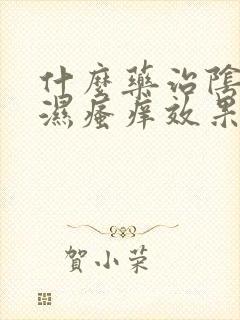 什麼藥治陰
濕瘙痒效果
賀小荣